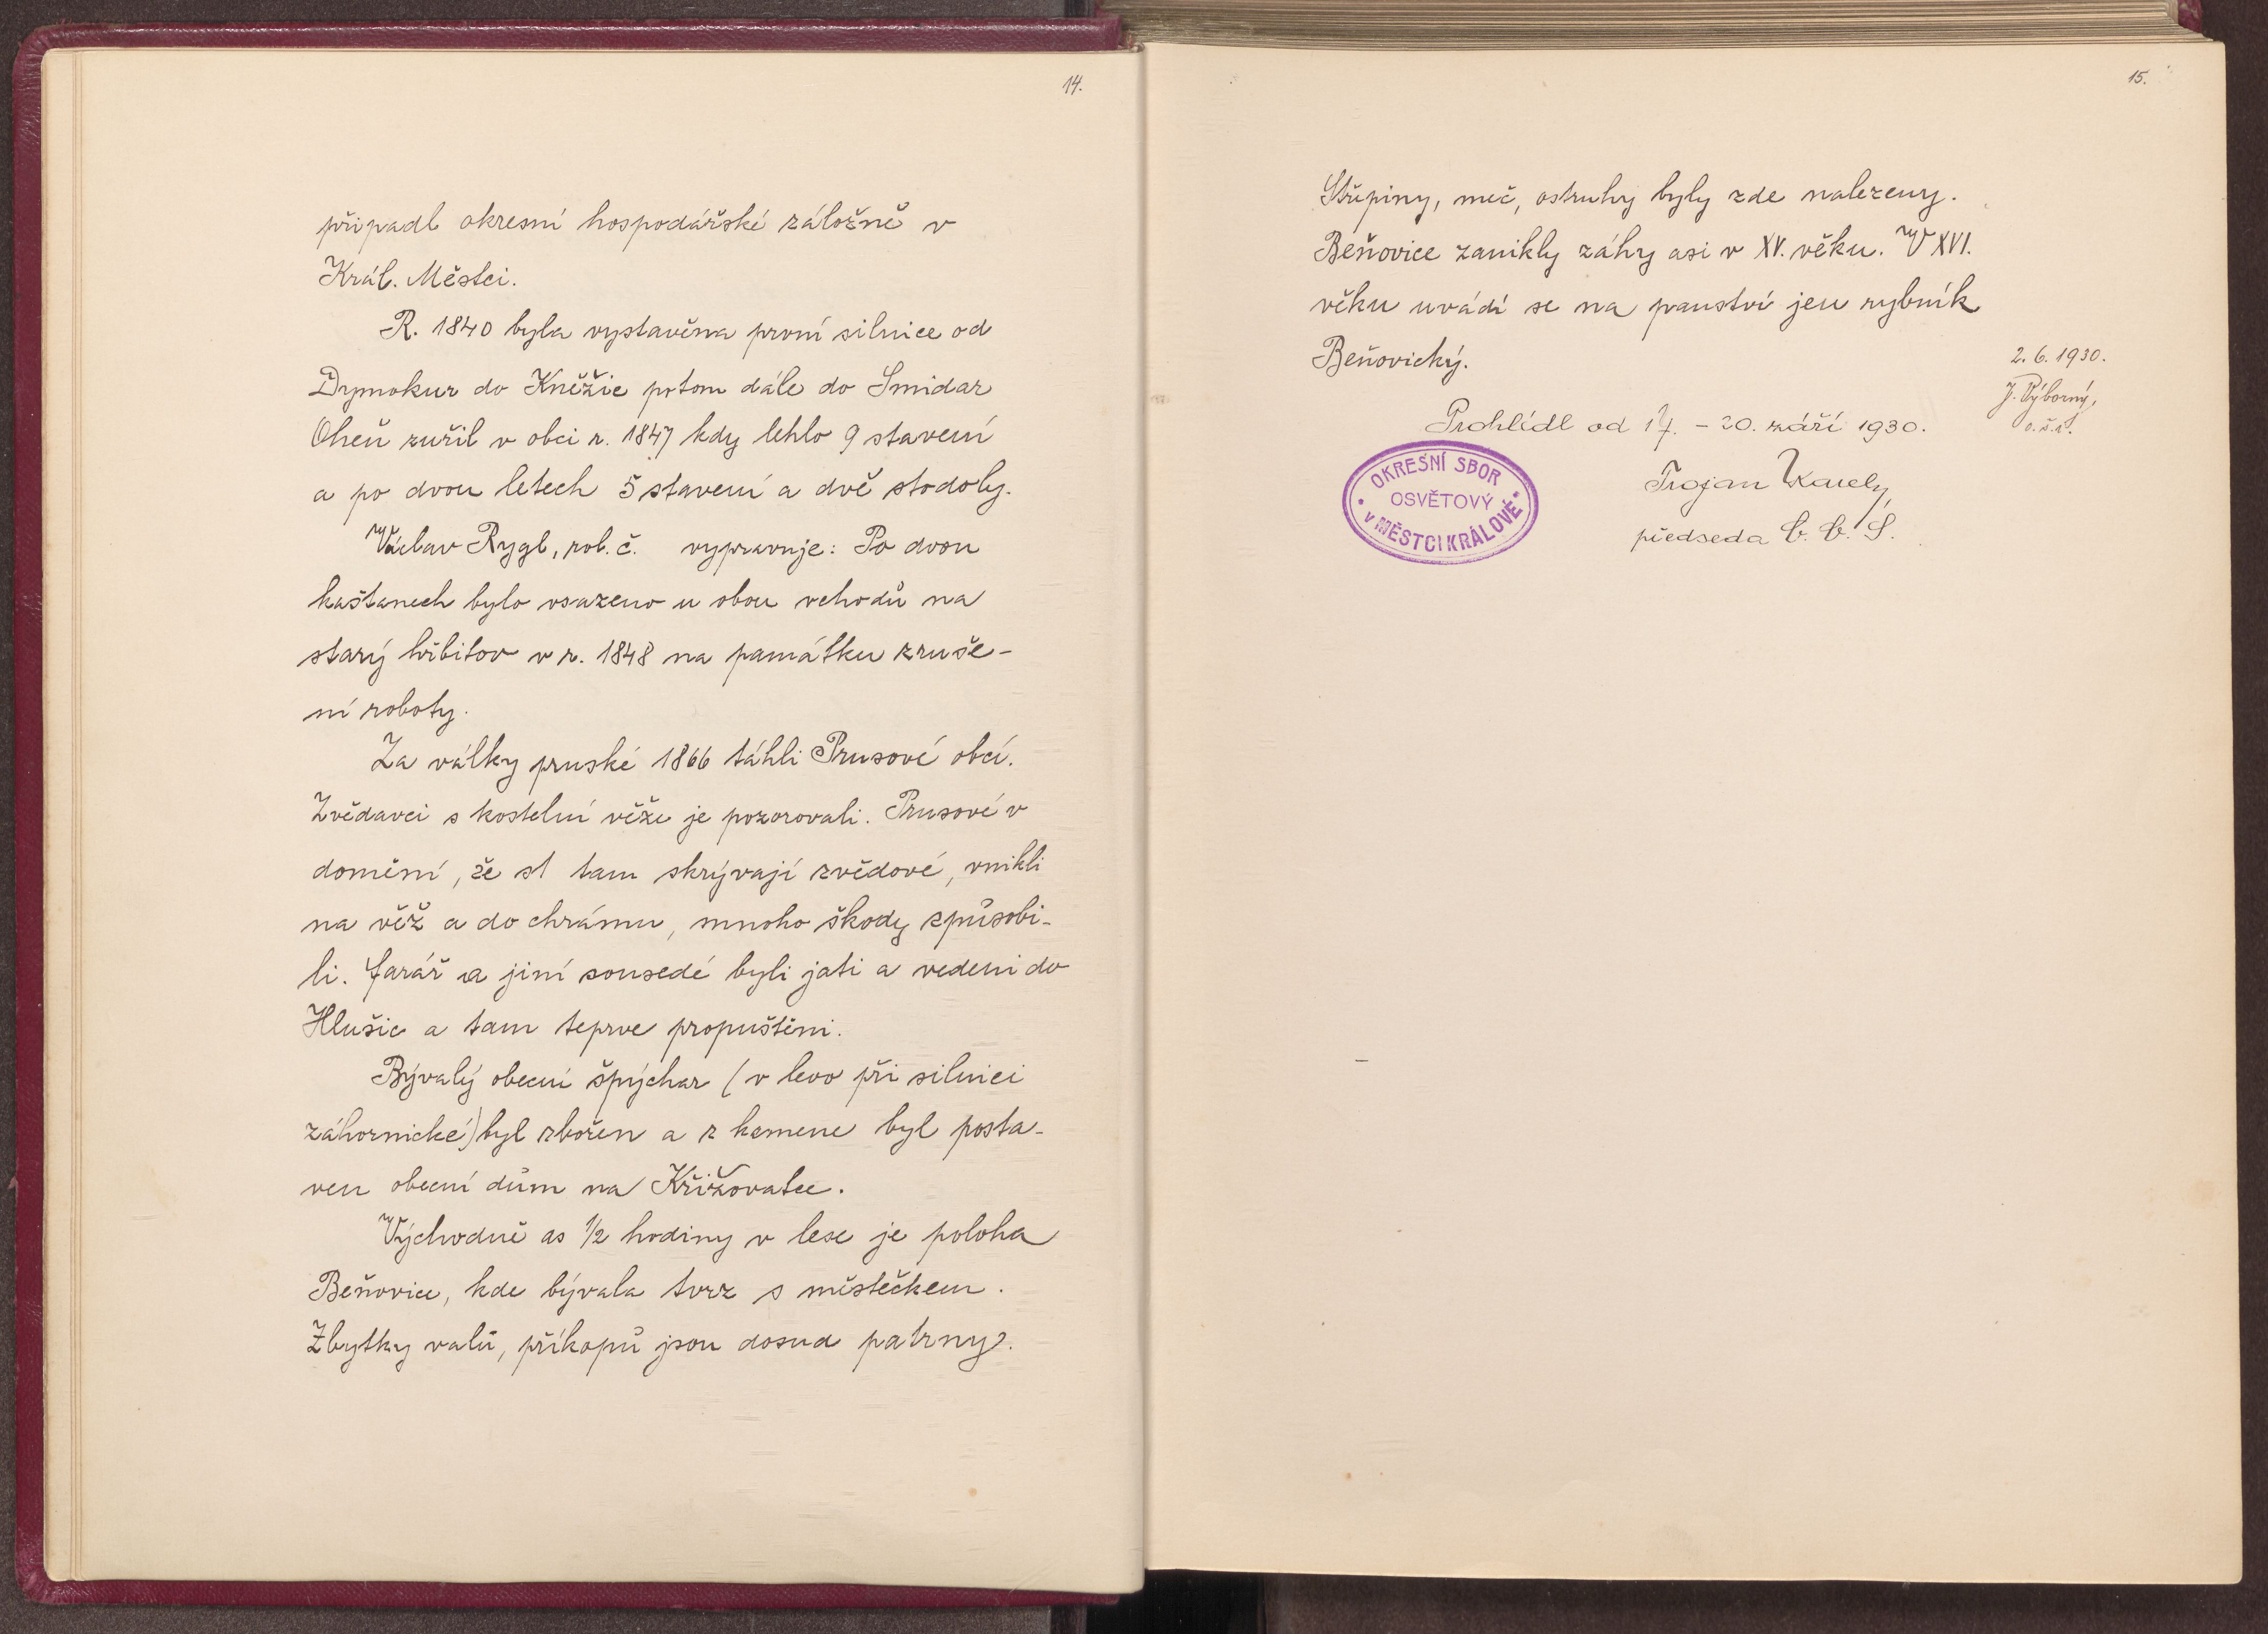 14.
připadl okresní hospodářské záložně v
Král. Městci.
R. 1840 byla vystavěna první silnice od
Dymokur do Kněžic potom dále do Smidar
Oheň zuřil v obci r. 1847 kdy lehlo 9 stavení
a po dvou letech 5 stavení a dvě stodoly.
Václav Rygl, rol. č. vypravuje: Po dvou
kaštanech bylo vsazeno u obou vchodů na
starý hřbitov v r. 1848 na památku zruše-
ní roboty.
Za války pruské 1866 táhli Prusové obcí.
Zvědavci s kostelní věže je pozorovali. Prusové v
domění, že se tam skrývají zvědové, vnikli
na věž a do chrámu, mnoho škody způsobi-
li. farář a jiní sousedé byli jati a vedeni do
Hlušic a tam teprve propuštěni.
Bývalý obecní špýchar (v levo při silnici
záhornické) byl zbořen a z kamene byl posta-
ven obecní dům na Křižovatce.
Východně as 1/2 hodiny v lese je poloha
Beňovice, kde bývala tvrz s městečkem.
Zbytky valů, příkopů jsou dosud patrny.
15.
Střepiny, meč, ostruhy byly zde nalezeny.
Beňovice zanikly záhy asi v XV. věku. V XVI.
věku uvádí se na panství jen rybník
Beňovický.
2. 6. 1930.
J. Výborný,
Prohlídl od 17. - 20. září 1930.
OKRESNÍ SBOR
OSVĚTOVÝ
V MĚSTCI KRÁLOVÉ
Trojan
předseda